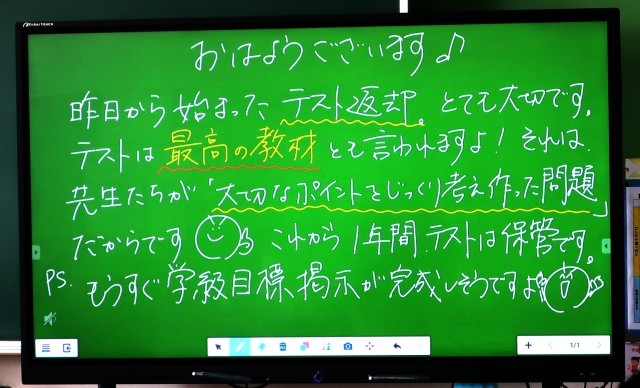 おはようございます♪
昨日から始まったテスト返却。とても大切です。
テストは最高の教材とも言われますよ！それは、
先生たちが「大切なポイントをじっくり考え作った問題」
だからです これから1年間、テストは保管です。
PS. もうすぐ学級目標、掲示が完成しそうですよ
1/1